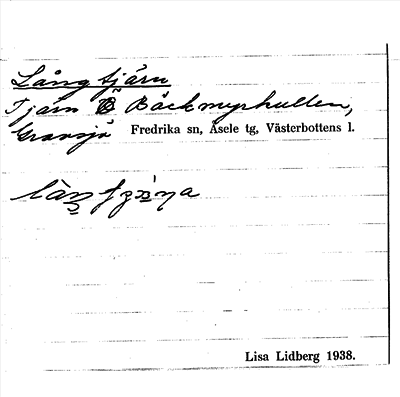 Långtjärn
Tjärn Ö Bäckmyrkullen,
Gransjö Fredrika sn, Åsele tg, Västerbottens l.
Lisa Lidberg 1938.